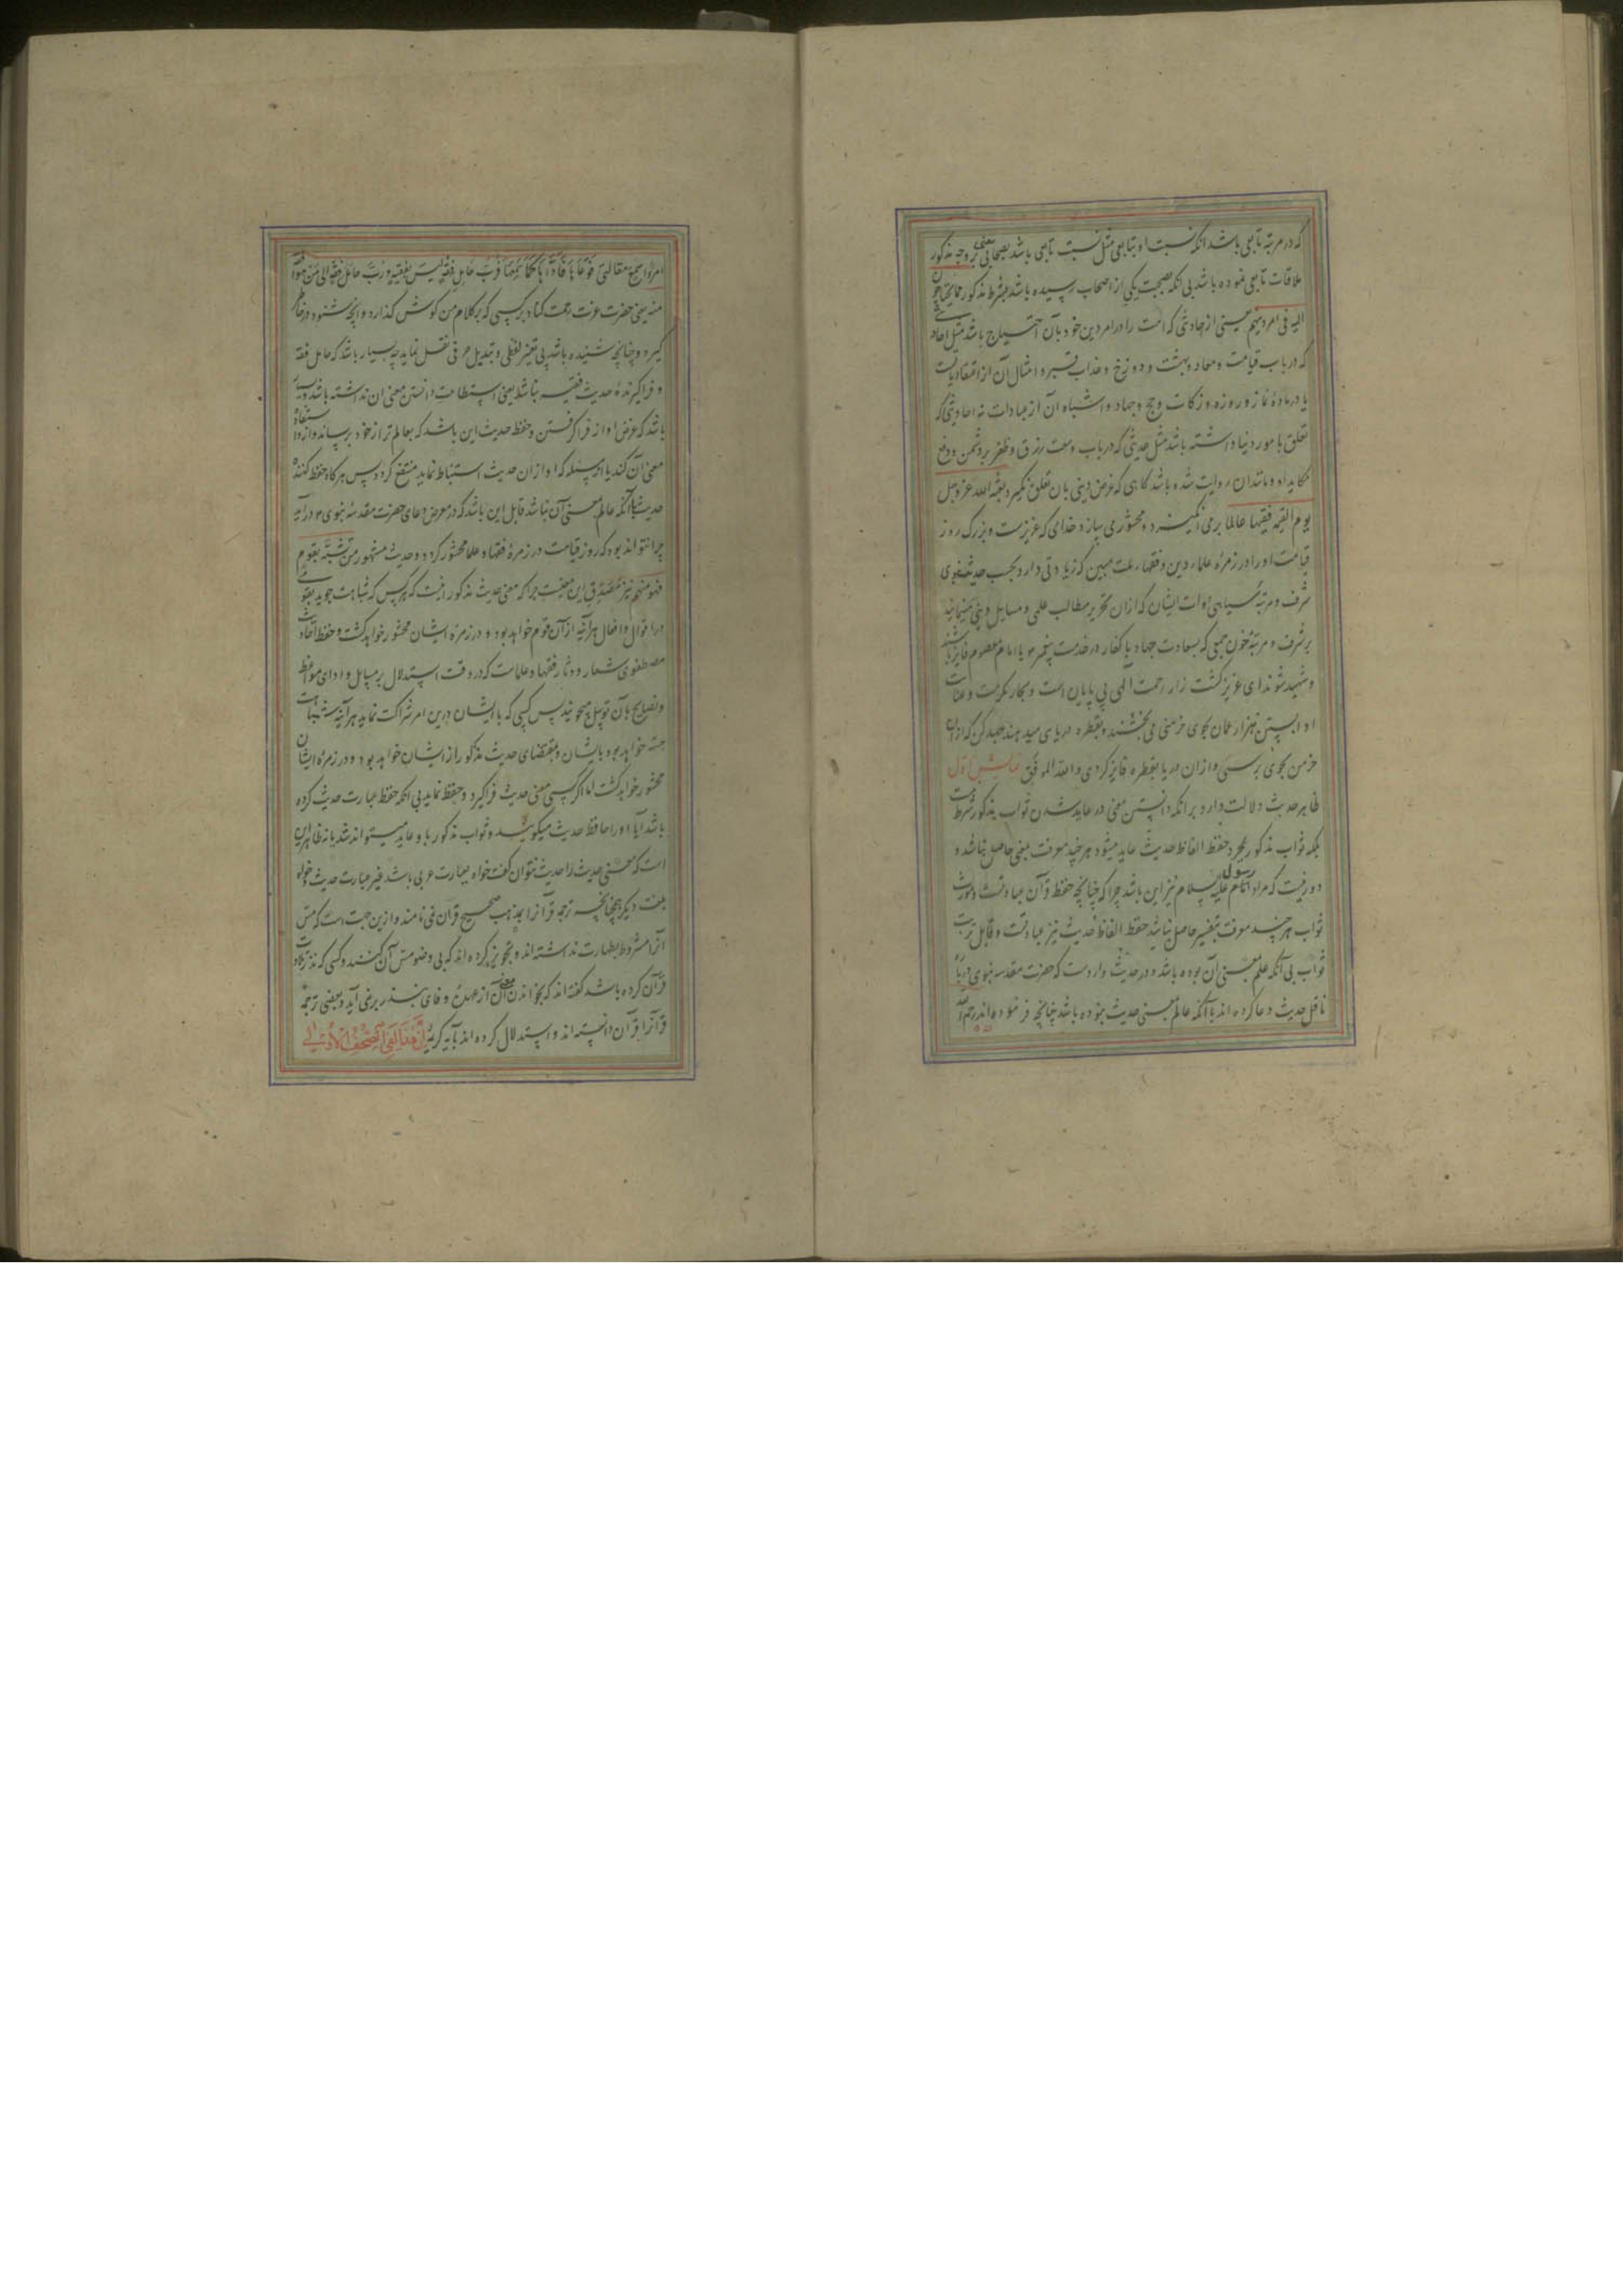 که در مرتبه تابعی باشد انکه نسبت او بتابعی مثل نسبت تابعی باشد بصحابی یعنی بر وجه مذکور
ملاقات تابعی نموده باشد بی انکه بصحبت یکی از اصحاب رسیده باشد بشرط مذکور مما یحتاجون
الیه فی امر دینهم یعنی از احادیثی که امت را در امر دین خود بآن احتیاج باشد مثل احادیثی
که در باب قیامت و معاد و بهشت و دوزخ و عذاب قبر و امثال آن از اعتقادیات
یا در ماده نماز و روزه و زکات و حج و جهاد و اشباه آن از عبادات نه احادیثی که
تعلق بامور دنیا داشته باشد مثل حدیثی که در باب وسعت رزق و ظفر بر دشمن و دفع
مکاید او و مانند ان روایت شده باشد کاهی که غرض دینی بان تعلق نگیرد بعثه الله عز وجل
یوم القیمه فقیها عالما برمی انگیزد و محشور می سازد خدای که عزیزست و بزرک روز
قیامت او را در زمره علماء دین و فقهاء ملت مبین که زیادتی دارد بحسب حدیث نبوی
شرف و مرتبه سیاهی ادوات ایشان که ازان تحریر مطالب علمی و مسایل دینی مینمایند
بر شرف و مرتبه خون جمعی که بسعادت جهاد با کفار در خدمت پیغمبر یا امام معصوم فایز باشند
و شهید شوند ای عزیز کشت زار رحمت الهی بی پایان است و بحار مکرمت و عنایت
او خرمنی می بخشند و بقطره دریای میدهند جهد کن که ازان
خرمن بجوی برسی و ازان دریا بقطره فایز کردی والله الموفق نمایش اول
ظاهر حدیث دلالت دارد بر انکه دانستن معنی در عاید شدن ثواب مذکور شرط نیست
بلکه ثواب مذکور بمجرد حفظ الفاظ حدیث عاید میشود هر چند معرفت معنی حاصل نباشد و
دور نیست که مراد رسول انام علیه السلام نیز این باشد چرا که چنانچه حفظ قرآن عبادتست و مورث
ثواب هر چند معرفت تفسیر حاصل نباشد حفظ الفاظ حدیث نیز عبادتست و قابل ترتب
ثواب بی آنکه علم بمعنی ان بوده باشد و در حدیث واردست که حضرت مقدسه نبوی درباره
ناقل حدیث دعا کرده اند با آنکه عالم بمعنی حدیث نبوده باشد چنانچه فرموده اند رحم الله
امرءا سمع مقالتی فوعاها فاداها کما سمعها فرب حامل فقه لیس بفقیه و رب حامل فقه الی من هو افقه
منه یعنی حضرت عزت رحمت کناد بر کسی که بر کلام من کوش کذارد و انچه شنود در خاطر
گیرد و چنانچه شنیده باشد بی تغییر لفظی و تبدیل حرفی نقل نماید چه بسیار باشد که حامل فقه
و فراگیرنده حدیث فقیه نباشد یعنی استطاعت دانستن معنی ان نداشته باشد و بسیار
باشد که غرض او از فراگرفتن و حفظ حدیث این باشد که بعالم تر از خود برساند و ازو استفاده
معنی آن کند یا از مسئله که او ازان حدیث استنباط نماید منتفع کردد پس هرکاه حفظ کننده
حدیث با آنکه عالم بمعنی آن نباشد قابل این باشد که در معرض دعای حضرت مقدسه نبوی درآید
چرا نتواند بود که روز قیامت در زمره فقها و علما محشور کردد و حدیث مشهور من تشبه بقوم
فهو منهم نیز مصدق این معنیست چرا که معنی حدیث مذکور انیست که هر کس که شباهت جوید بقومی
در اقوال و افعال هرآینه از آن قوم خواهد بود و در زمره ایشان محشور خواهد کشت و حفظ احادیث
مصطفوی شعار و دثار فقها و علماست که در وقت استدلال بر مسایل و ادای مواعظ
و نصایح بآن توسل میجویند پس کسی که با ایشان درین امر شراکت نماید هرآینه شباهت
جسته خواهد بود بایشان و بمقتضای حدیث مذکور از ایشان خواهد بود و در زمره ایشان
محشور خواهد کشت اما اگر کسی معنی حدیث فراگیرد و حفظ نماید بی انکه حفظ عبارت حدیث کرده
باشد آیا او را حافظ حدیث میکویند و ثواب مذکور باو عاید میتواند شد یا نه ظاهر این
است که معنی حدیث را حدیث نتوان گفت خواه بعبارت عربی باشد غیر عبارت حدیث و خواه
بلغت دیکر همچنانچه ترجمه قرآن را بمذهب صحیح قران نمی نامند و ازین جهت است که مس
آنرا مشروط بطهارت نداشته اند و تجویز کرده اند که بی وضو مس آن کنند و کسی که نذر تلاوت
قرآن کرده باشد گفته اند که بخواندن معنی آن از عهده وفای بنذر برنمی آید و بعضی ترجمه
قرآن را قرآن دانسته اند و استدلال کرده اند بآیه کریمه ان هذا لفی الصحف الاولی